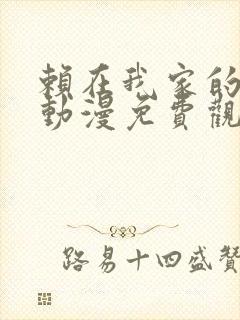 賴在我家的
動漫免費觀
路易十四盛贊